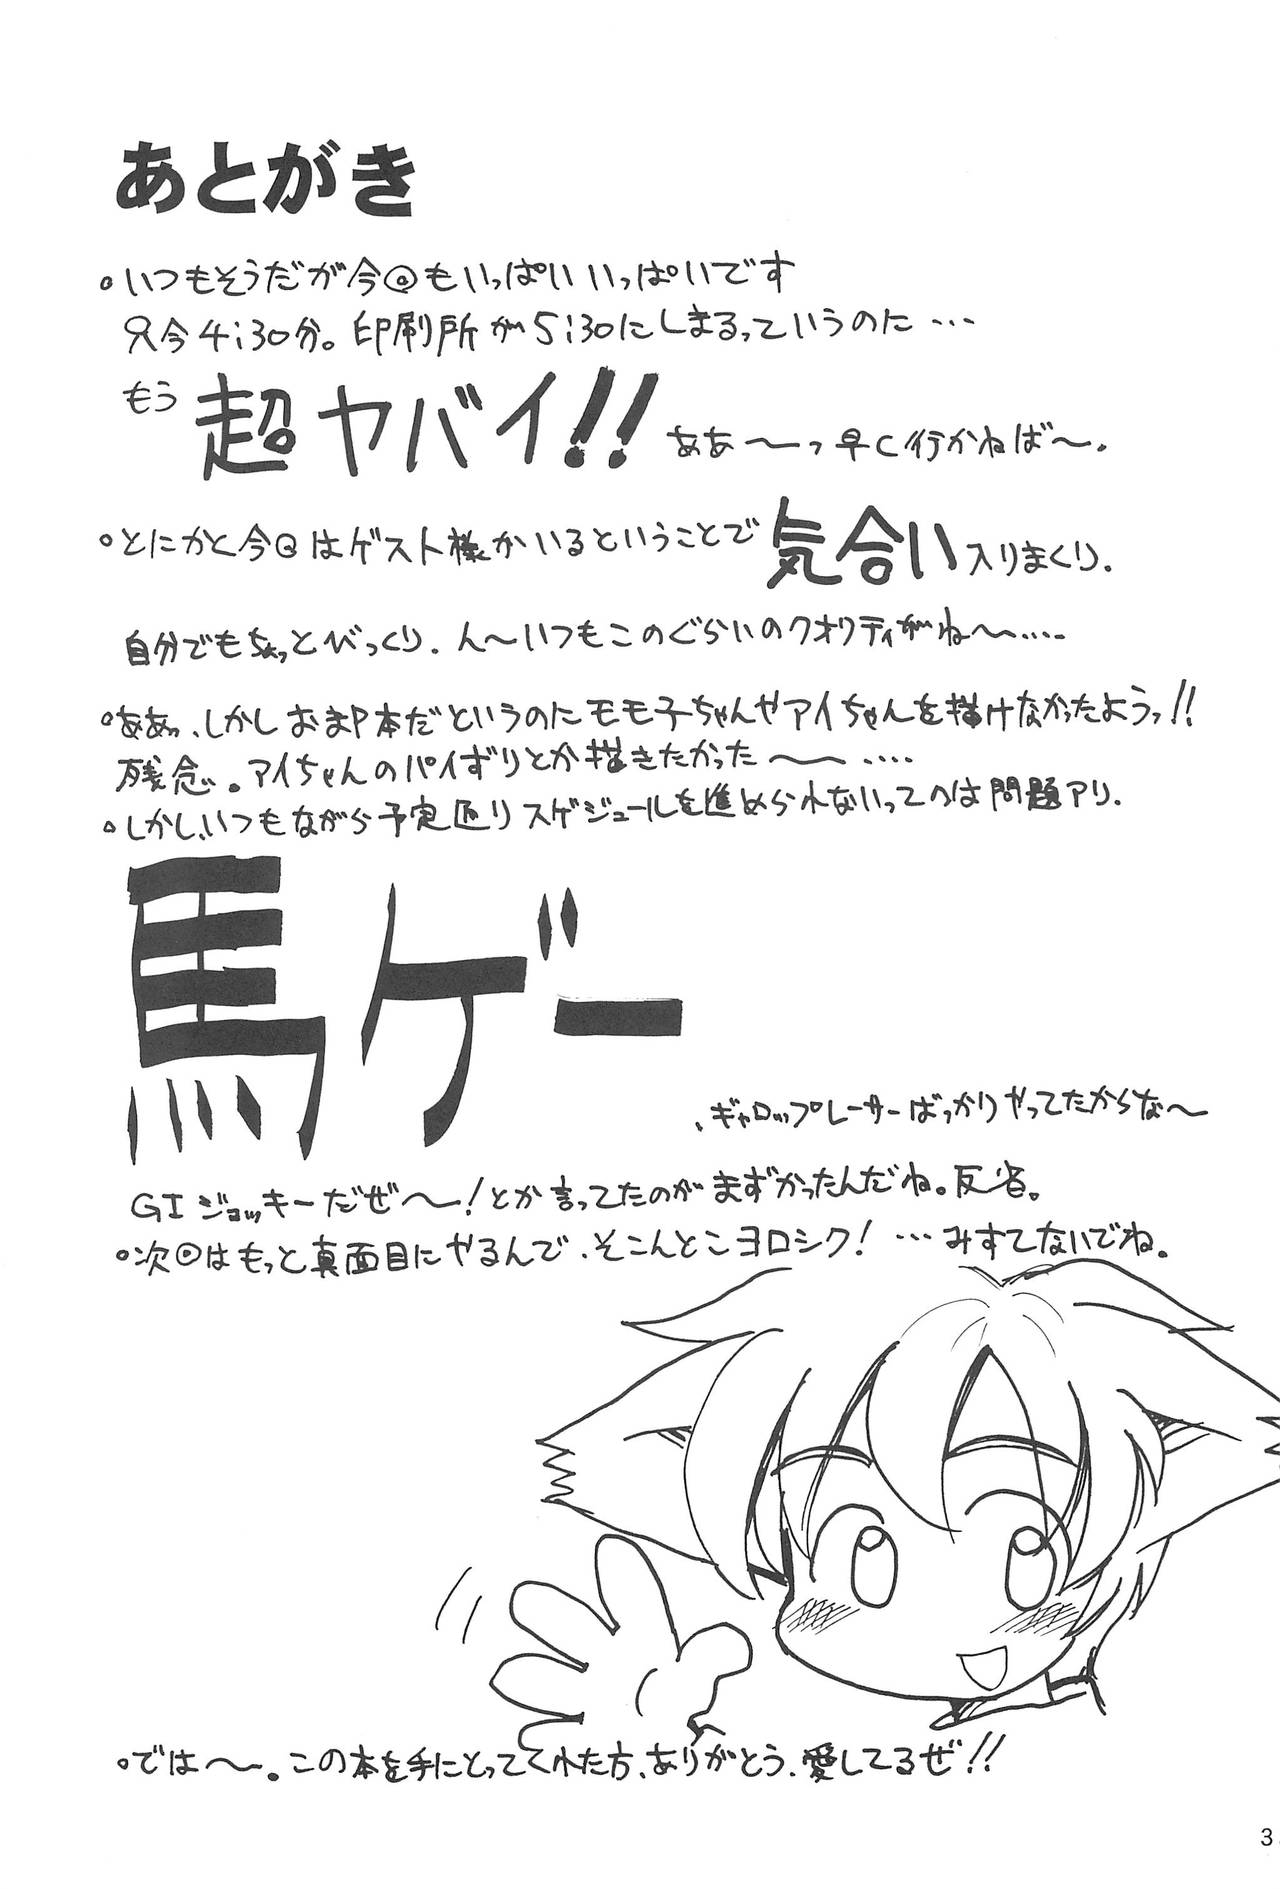 あとがき
。いつもそうだが今回もいっぱいいっぱいです
只今4:30分。印刷所が5:30にしまるっていうのに…
もう 超ヤバイ!! ああ〜っ早く行かねば〜.
。とにかく今回はゲスト様がいるということで 気合い 入りまくり.
自分でもちょっとびっくり. ん〜いつもこのぐらいのクオリティがね〜……
。ああっ、しかしおまP本だというのにモモ子ちゃんやアイちゃんを描けなかったようっ!!
残念。アイちゃんのパイずりとか描きたかった〜……
。しかし、いつもながら予定通りスケジュールを進められないってのは問題アリ.
馬ゲー
、ギャロップレーサーばっかりやってたからな〜
GIジョッキーだぜ〜!とか言ってたのがまずかったんだね。反省。
。次回はもっと真面目にやるんで、そこんとこヨロシク! …みすてないでね。
。では〜。この本を手にとってくれた方、ありがとう、愛してるぜ!!
3